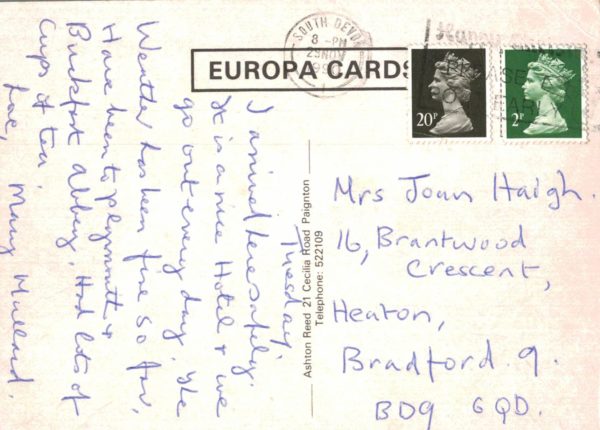 SOUTH DEVON
8 - PM
25 NOV
EUROPA CARDS
20P
2P
Tuesday.
I arrived here safely.
It is a nice Hotel & we
go out every day. The
Weather has been fine so far,
Have been to plymouth &
Buckfast Abbey. Had lots of
cups of tea.
Love, Mary Mullard.
Ashton Reed 21 Cecilia Road Paignton
Telephone: 522109
Mrs Joan Haigh.
16, Brantwood
Crescent,
Heaton,
Bradford. 9.
BD9 6QD.